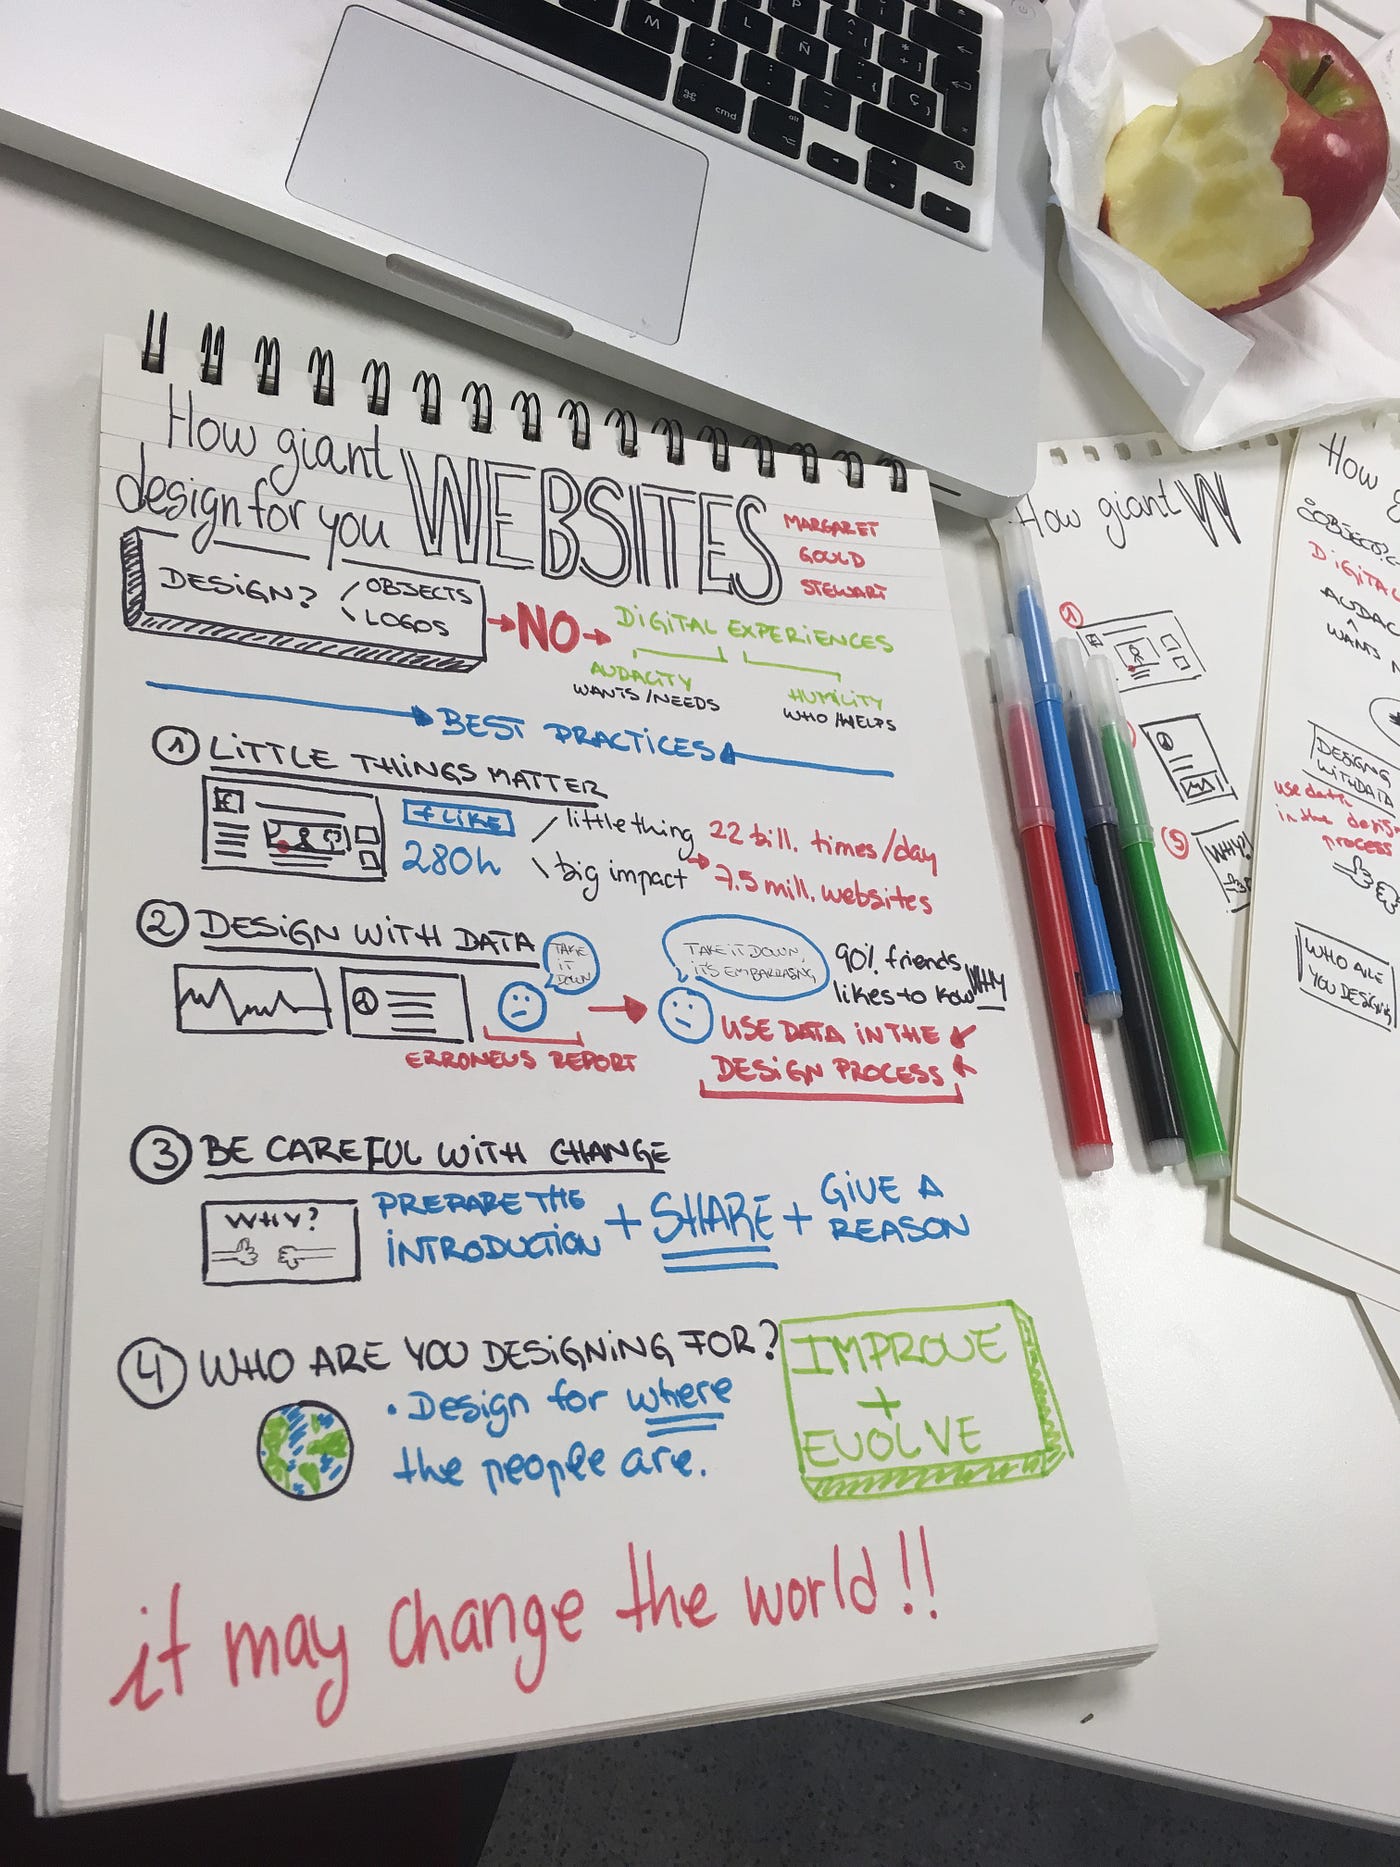 M
P
L
Ñ
Ç
cmd
alt
How giant
design for you
WEBSITES
MARGARET
GOULD
STEWART
DESIGN?
OBJECTS
LOGOS
NO
DIGITAL EXPERIENCES
AUDACITY
WANTS/NEEDS
HUMILITY
WHO/HELPS
BEST PRACTICES
1 LITTLE THINGS MATTER
f LIKE
280h
little thing
big impact
22 bill. times/day
7.5 mill. websites
2 DESIGN WITH DATA
TAKE
IT
DOWN
ERRONEUS REPORT
TAKE IT DOWN,
IT'S EMBARRASING
90% friends
likes to know WHY
USE DATA IN THE
DESIGN PROCESS
3 BE CAREFUL WITH CHANGE
WHY?
PREPARE THE
INTRODUCTION
+ SHARE +
GIVE A
REASON
4 WHO ARE YOU DESIGNING FOR?
• Design for where
the people are.
IMPROVE
+
EVOLVE
it may change the world!!
How giant W
1
5
WHY?
How g
DIGITAL
AUDAC
WANTS N
DESIGNG
WITH DATA
use data
in the desig
process
WHO ARE
YOU DESIGNING